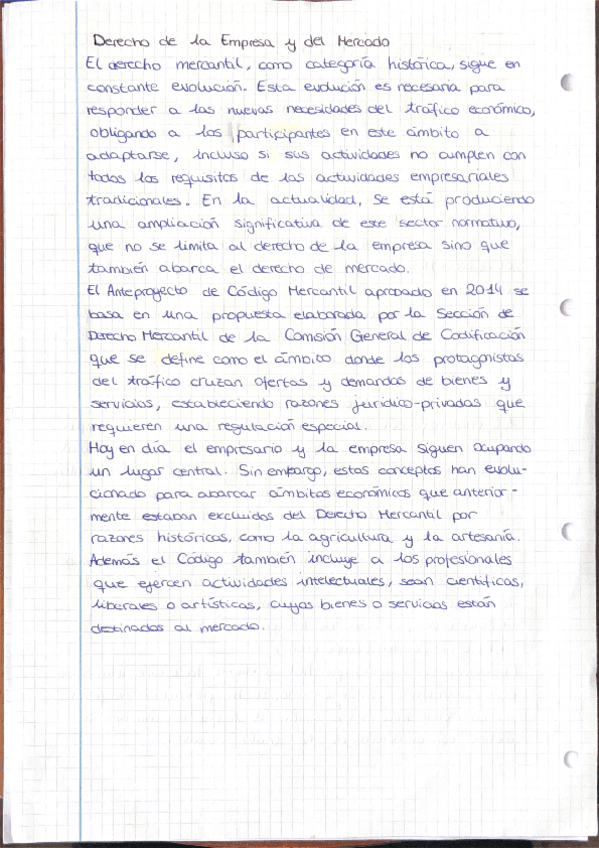 Derecho de la Empresa y del Mercado
El derecho mercantil, como categoría histórica, sigue en
constante evolución. Esta evolución es necesaria para
responder a las nuevas necesidades del tráfico económico,
obligando a los participantes en este ámbito a
adaptarse, incluso si sus actividades no cumplen con
todos los requisitos de las actividades empresariales
tradicionales. En la actualidad, se está produciendo
una ampliación significativa de este sector normativo,
que no se limita al derecho de la empresa sino que
también abarca el derecho de mercado.
El Anteproyecto de Código Mercantil aprobado en 2014 se
basa en una propuesta elaborada por la Sección de
Derecho Mercantil de la Comisión General de Codificación
que se define como el ámbito donde los protagonistas
del tráfico cruzan ofertas y demandas de bienes y
servicios, estableciendo razones jurídico-privadas que
requieren una regulación especial.
Hoy en día el empresario y la empresa siguen ocupando
un lugar central. Sin embargo, estos conceptos han evolu-
cionado para abarcar ámbitos económicos que anterior-
mente estaban excluidos del Derecho Mercantil por
razones históricas, como la agricultura y la artesanía.
Además el Código también incluye a los profesionales
que ejercen actividades intelectuales, sean científicas,
liberales o artísticas, cuyos bienes o servicios están
destinados al mercado.